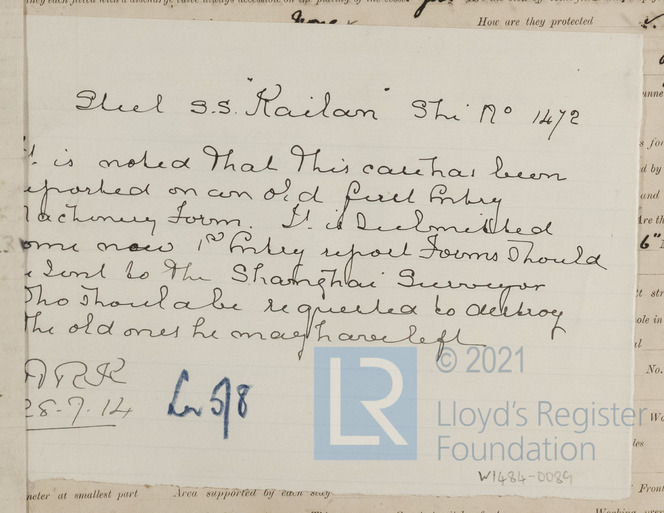 How are they protected
Steel S.S. "Kailan" Shi No 1472
It is noted that this case has been
reported on an old first Entry
Machinery Form. It is submitted
some new 1st Entry report Forms should
be sent to the Shanghai Surveyor
who should be requested to destroy
the old ones he may have left
28-7-14
5/8
LR
© 2021
Lloyd's Register
Foundation
W1484-0089
meter at smallest part Area supported by each stay
No.
Front
6"